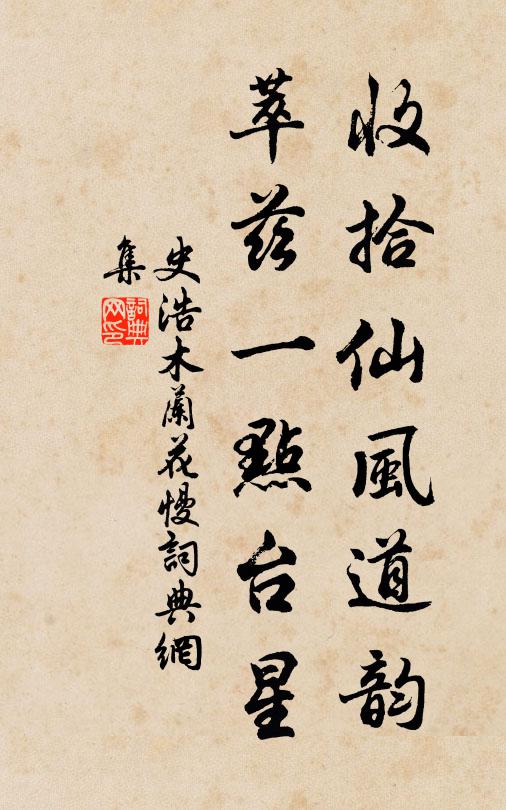 收拾仙風道韵
萃茲一點台星
史浩木蘭花慢詞典網
集
詞典
网印